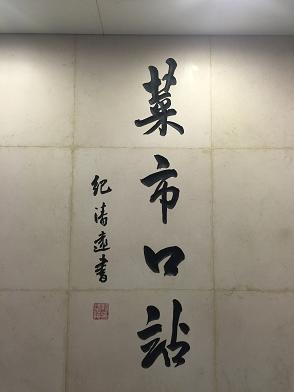 菜市口站
纪清远书